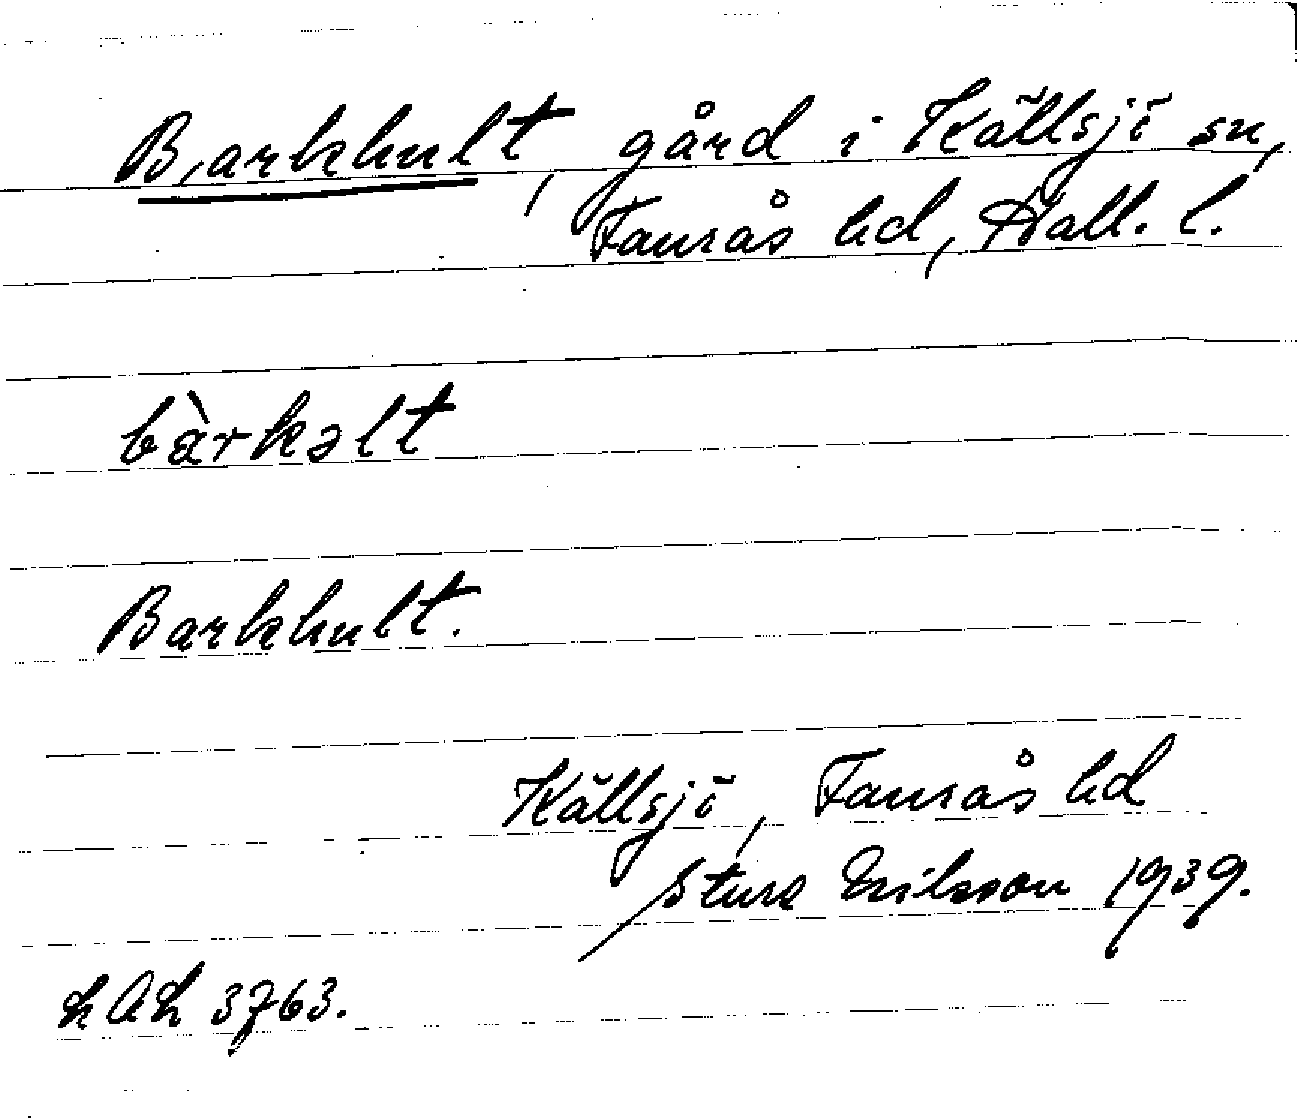 Barkhult, gård i Källsjö sn,
Faurås hd, Hall. l.
bàrkəlt
Barkhult.
Källsjö, Faurås hd
Sture Eriksson 1939.
3763.